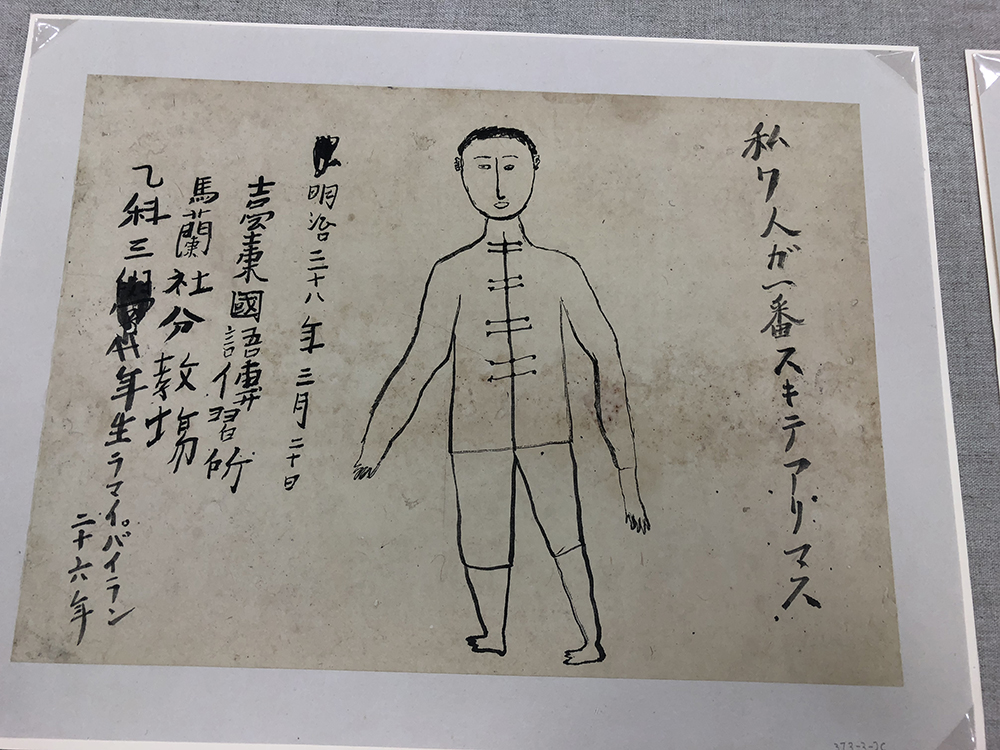 私ワ人ガ一番スキテアリマス
明治三十八年三月二十日
臺東國語傳習所
馬蘭社分教場
乙科三年生ラマイ。パイラン
二十六年